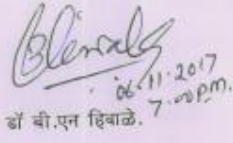 06-11-2017
7.00 p.m.
डॉ बी.एन हिवाळे.